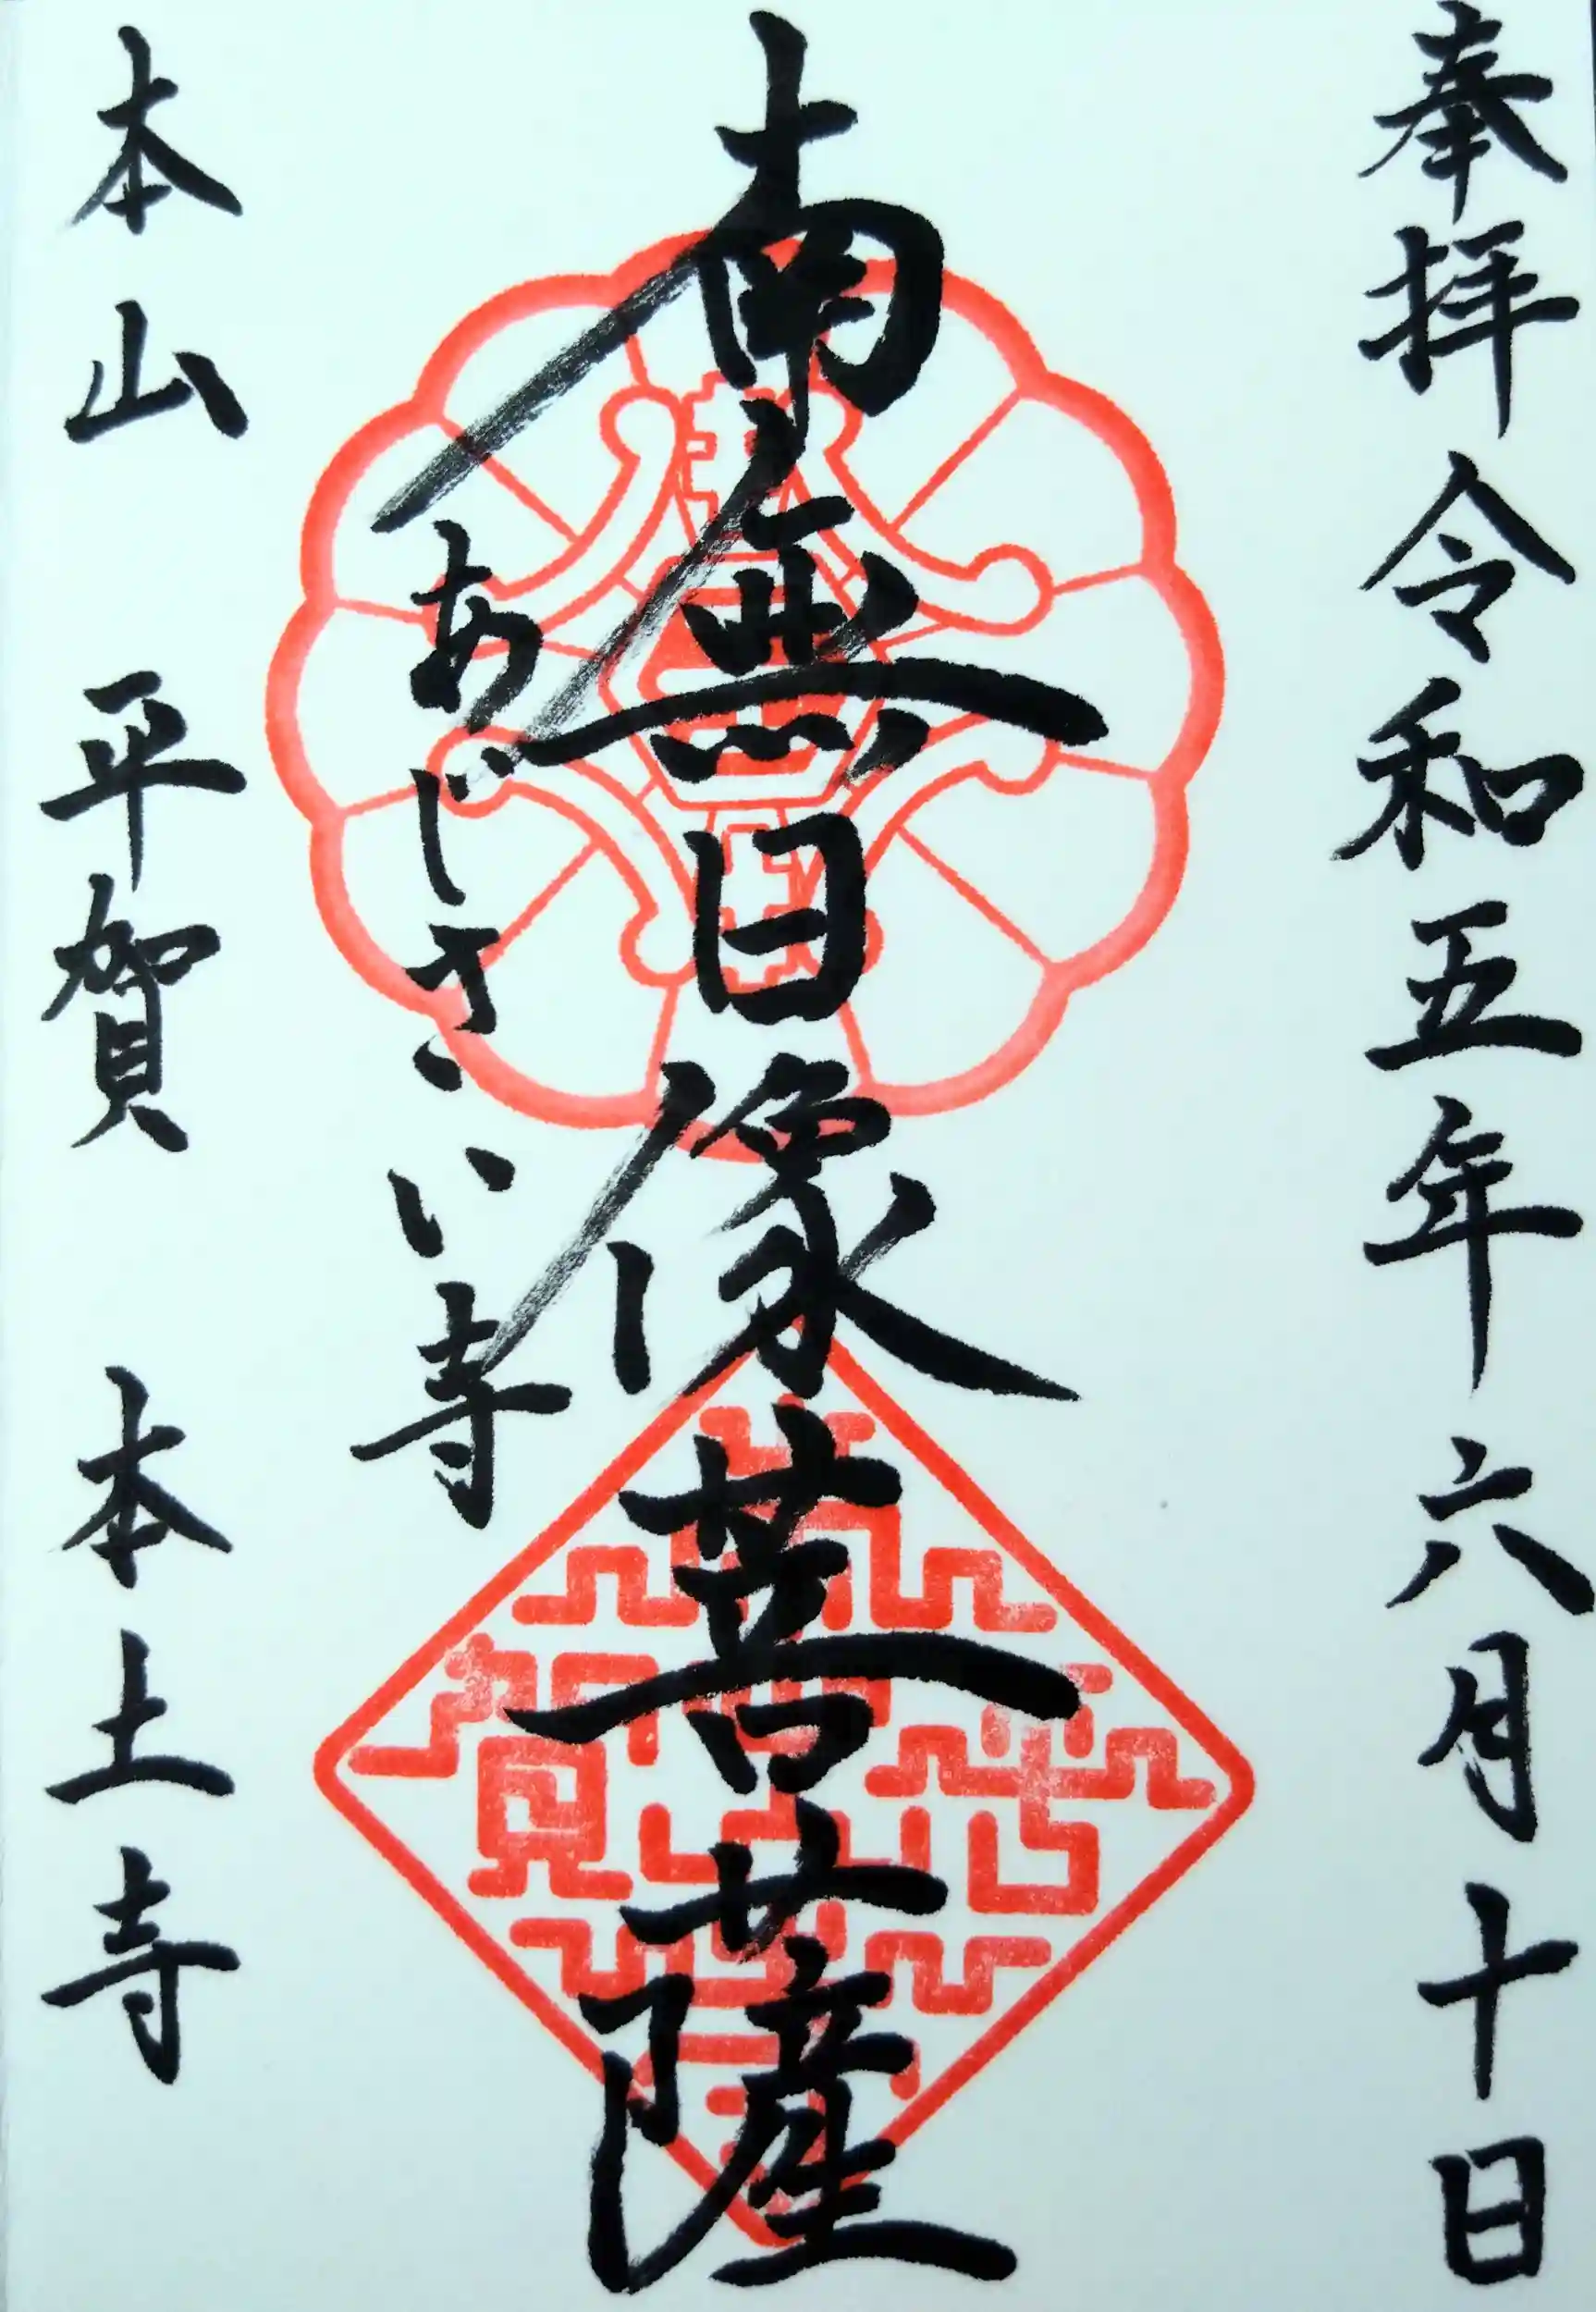 奉拝令和五年六月十日
南無日像菩薩
あじさい寺
本山 平賀 本土寺